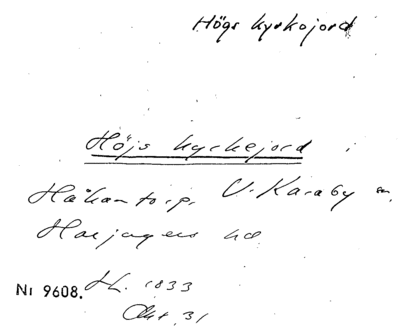 Högs kyrkojord
Höjs kyrkejord i
Håkantorp, V. Karaby sn,
Harjagers hd
Nr 9608. Hl. 1833
Akt 31